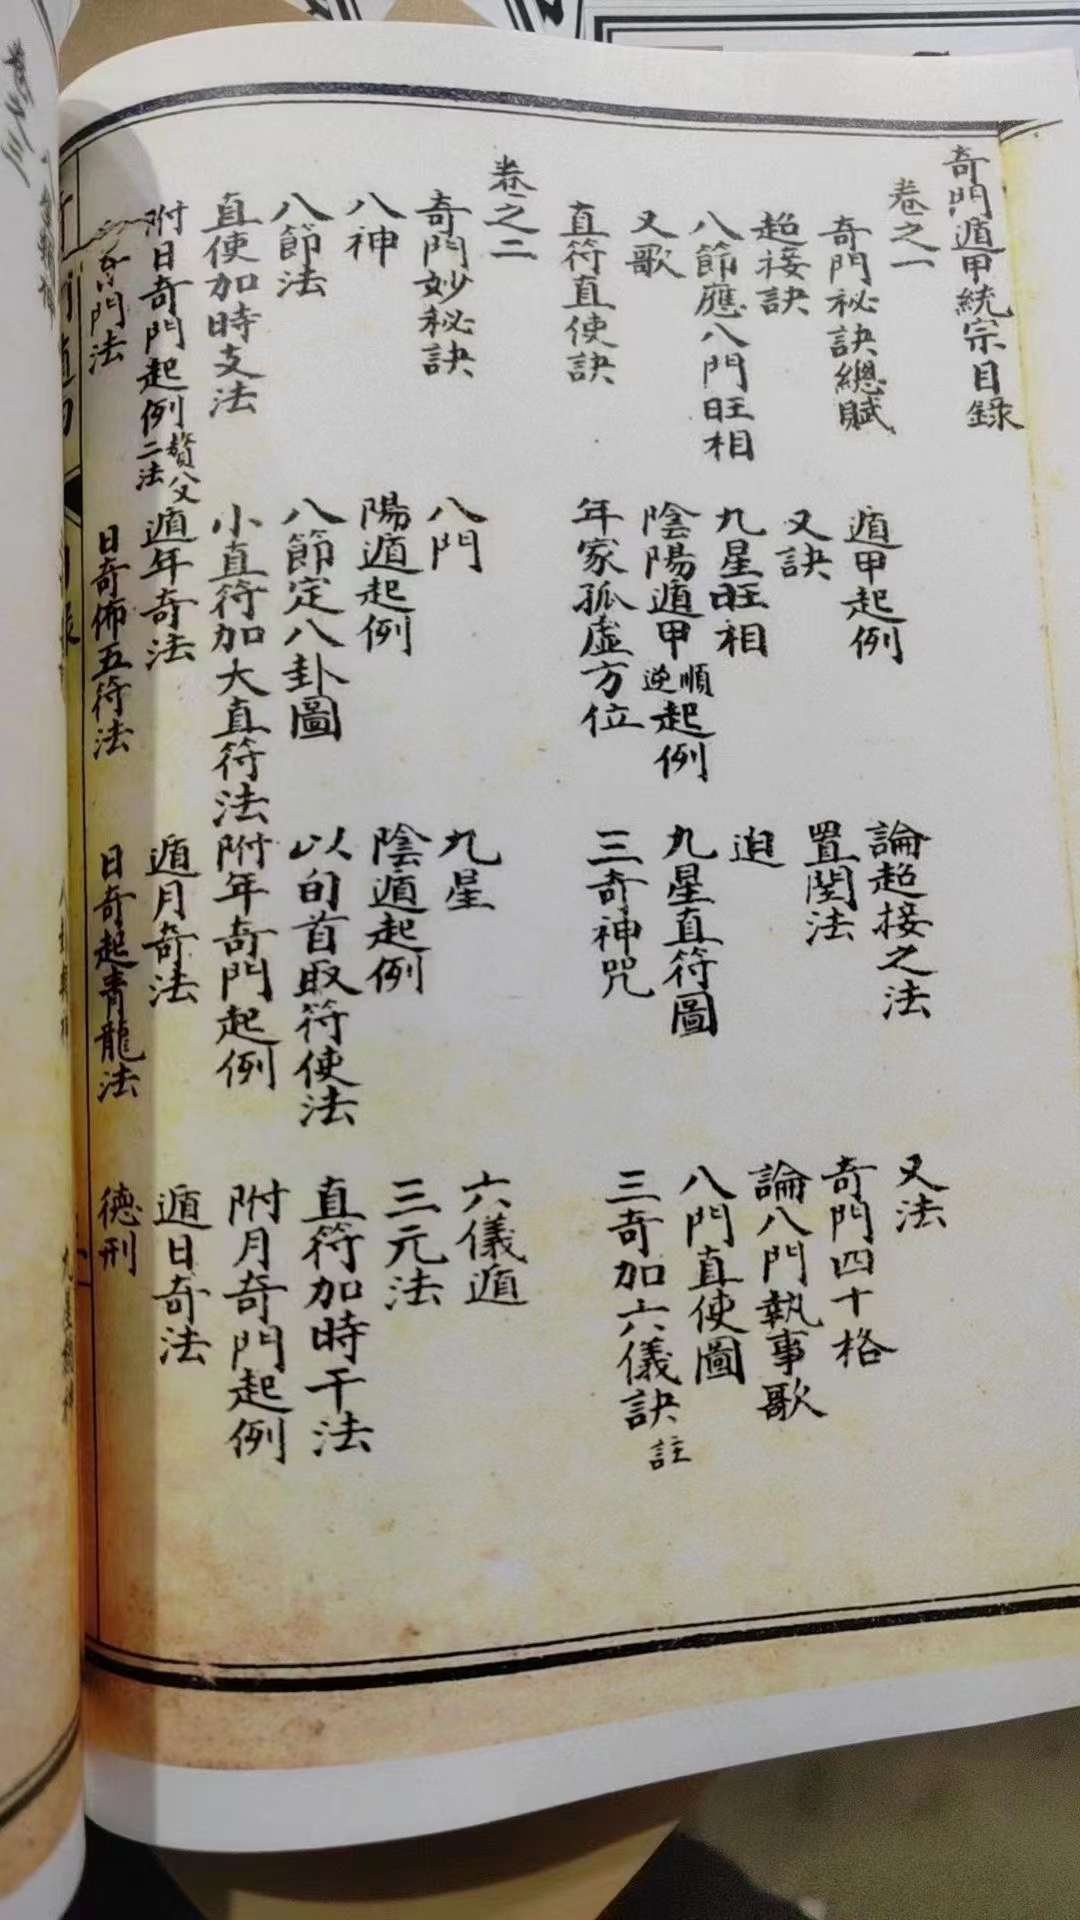 奇門遁甲統宗目錄
卷之一
奇門祕訣總賦 遁甲起例 論超接之法 又法
超接訣 又訣 置閏法 奇門四十格
八節應八門旺相 九星旺相 迫 論八門執事歌
又歌 陰陽遁甲順逆起例 九星直符圖 八門直使圖
直符直使訣 年家孤虛方位 三奇神咒 三奇加六儀訣註
卷之二
奇門妙秘訣 八門 九星 六儀遁
八神 陽遁起例 陰遁起例 三元法
八節法 八節定八卦圖 以旬首取符使法 直符加時干法
直使加時支法 小直符加大直符法 附年奇門起例 附月奇門起例
附日奇門起例二法 遁年奇法 遁月奇法 遁日奇法
奇門法 日奇佈五符法 日奇起青龍法 德刑